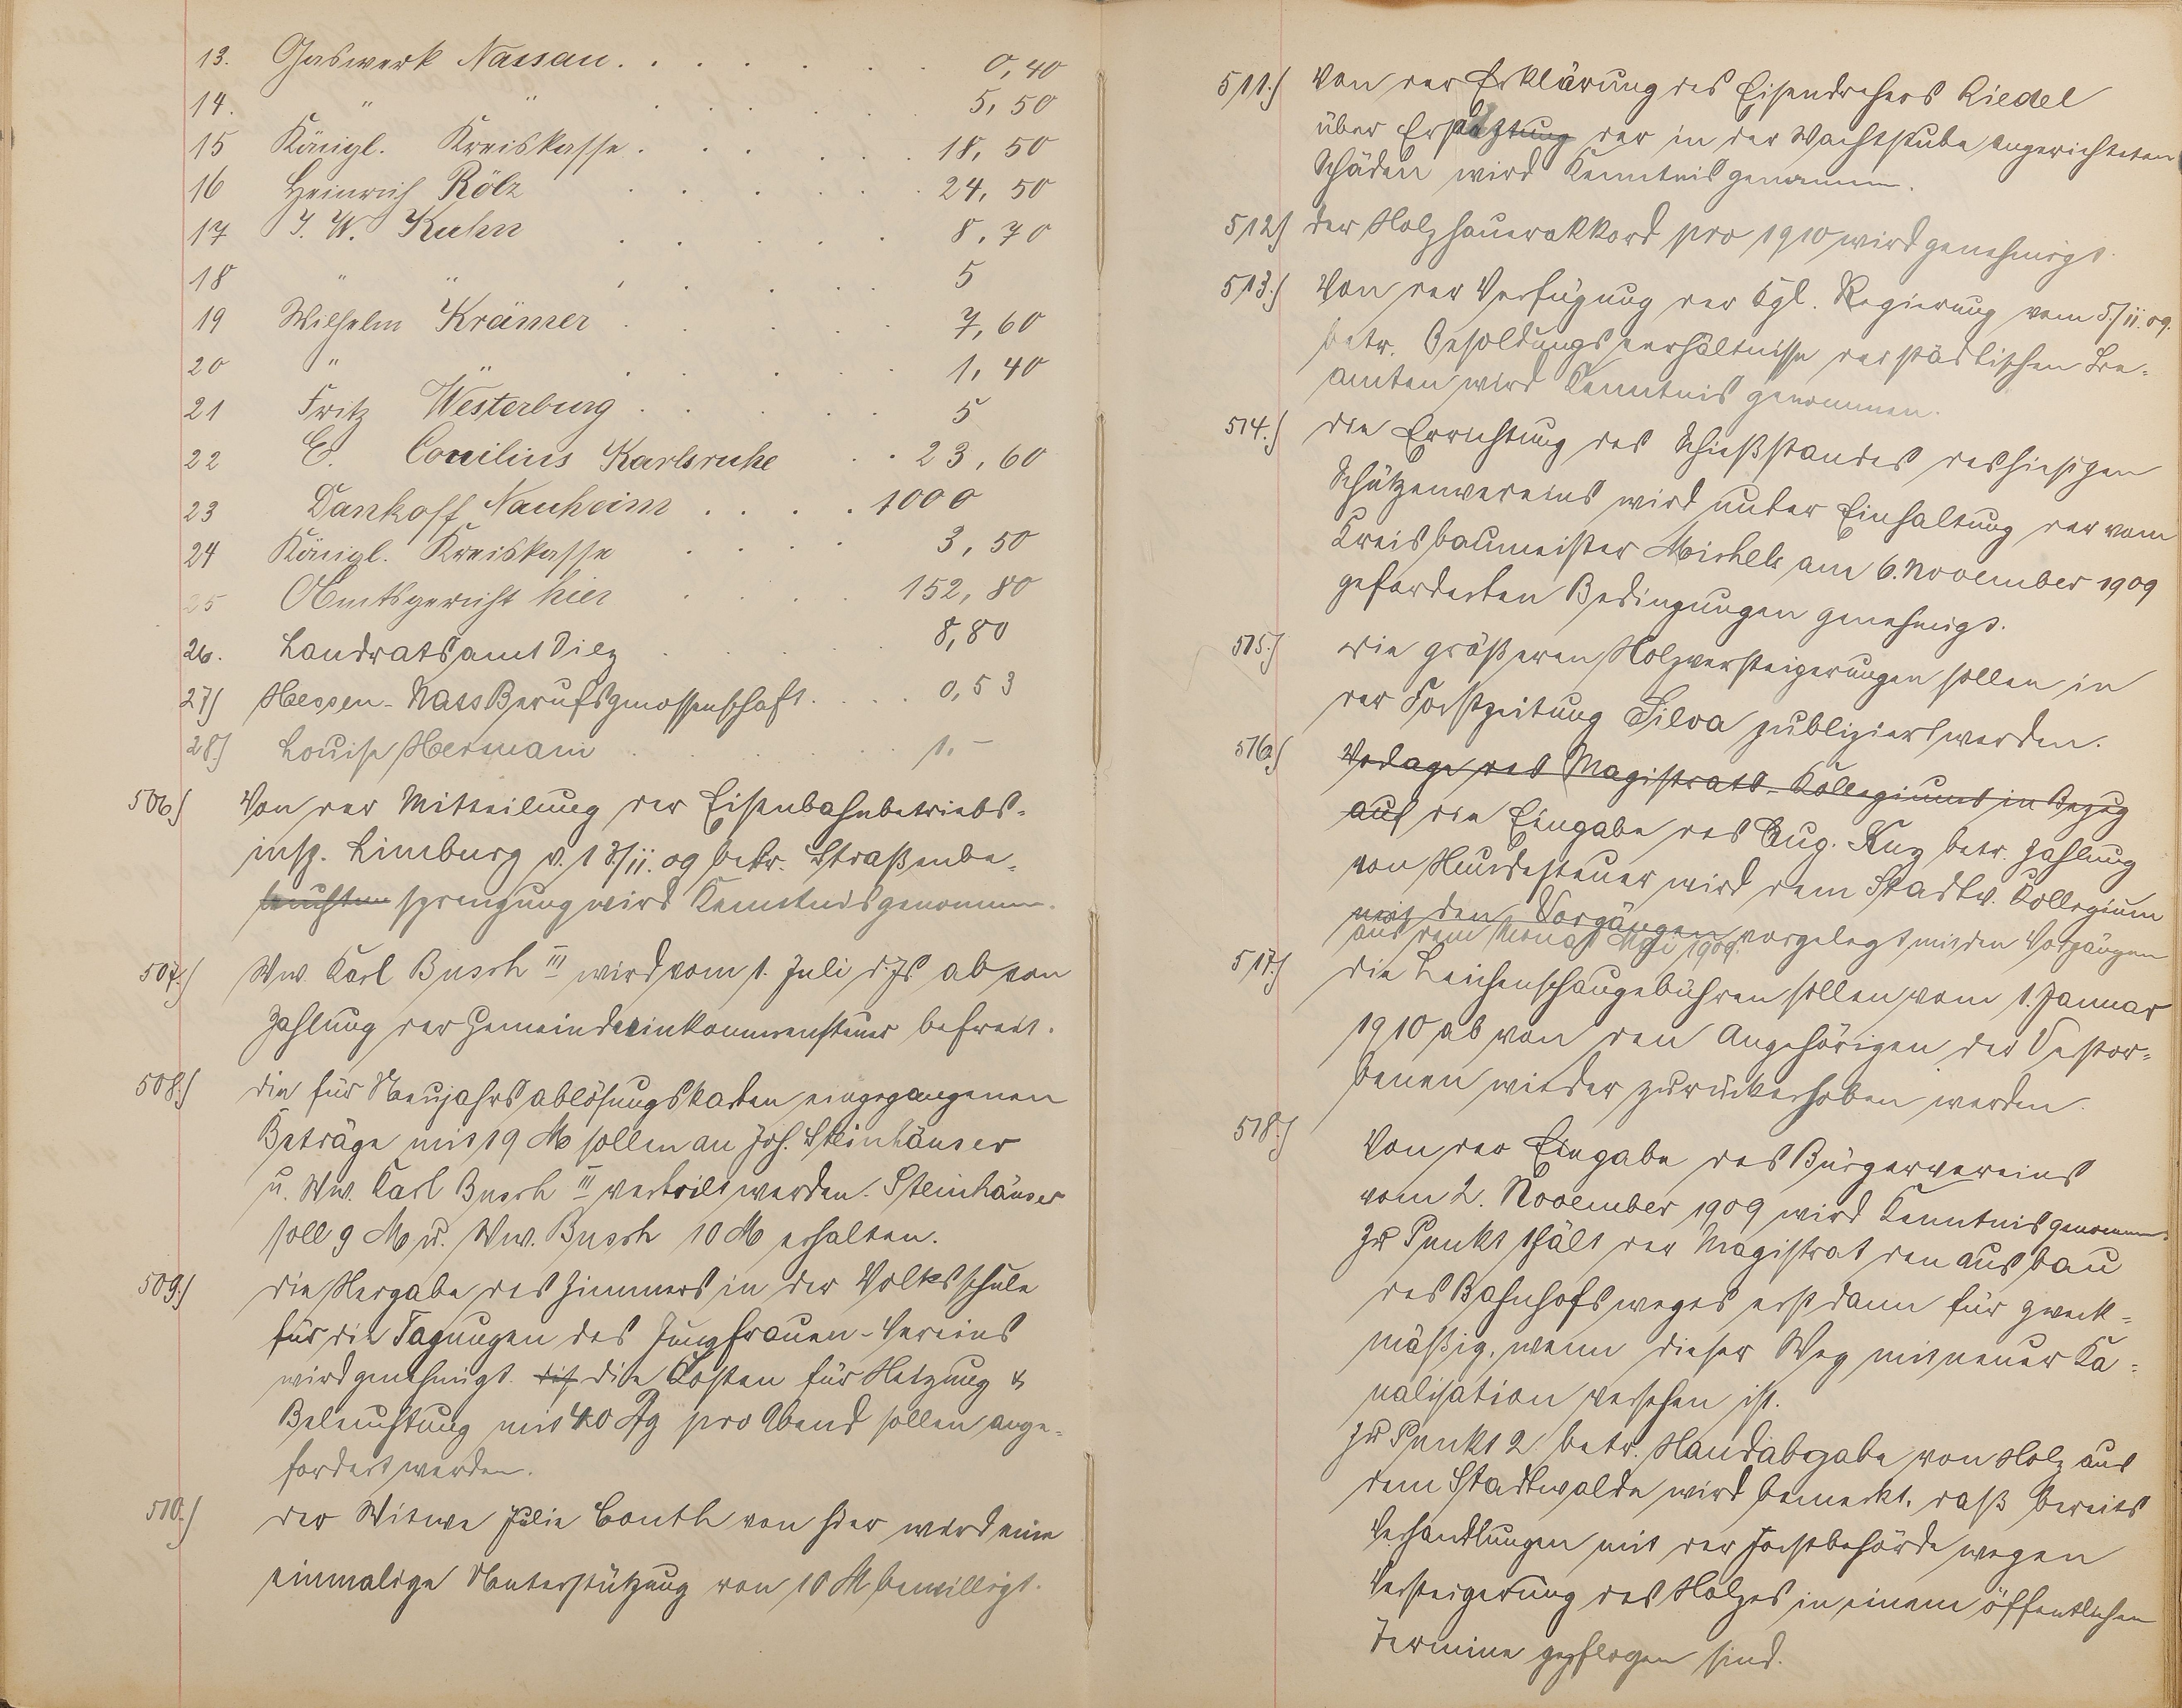 13. Gaswerk Nassau . . . . . . . 0,40
14. " " . . . . . 5,50
15 Königl. Kreiskasse . . . . . . 18,50
16 Heinrich Rölz . . . . . 24,50
17 J. W. Kuhn . . . . . 8,70
18 " " . . . . . 5
19 Wilhelm Krämer . . . . . 7,60
20 " " . . . . 1,40
21 Fritz Westerburg . . . . . 5
22 C. Conilius Karlsruhe . . 23,60
23 Dankoff Nauheim . . . . 1000
24 Königl. Kreiskasse . . . . 3,50
25 Amtsgericht hier . . . . 152,80
26. Landratsamt Diez . . . . 8,80
27) Hessen-Nass Berufsgenossenschaft . . . . 0,53
28.) Louise Hermani . . . . . 1.–
506.) Von der Mitteilung der Eisenbahnbetriebs-
insp. Limburg v. 13/11.09 betr. Straßenbe-
leuchten sprengung wird Kenntnis genommen.
507.) Ww. Karl Busch III wird vom 1. Juli d. Js. ab von
Zahlung der Gemeindeeinkommensteuer befreit.
508.) Die für Neujahrsablösungskarten eingegangenen
Beträge mit 19 M sollen an Joh. Steinhäuser
u. Ww. Karl Busch III verteilt werden. Steinhäuser
soll 9 M u. Ww. Busch 10 M erhalten.
509.) Die Hergabe des Zimmers in der Volksschule
für die Tagungen des Jungfrauen-Vereins
wird genehmigt. die Kosten für Heizung &
Beleuchtung mit 40 Pfg pro Abend sollen ange-
fordert werden.
510.) Der Witwe Julie Conth von hier wird eine
einmalige Unterstützung von 10 M bewilligt.
511.) Von der Erklärung des Eisendrehers Riedel
über Ersatz der in der Wachtstube angerichteten
Schäden wird Kenntnis genommen.
512.) Der Holzhauerakkord pro 1910 wird genehmigt.
513.) Von der Verfügung der Kgl. Regierung vom 5./11.09.
betr. Besoldungsverhältnisse der städtischen Be-
amten wird Kenntnis genommen.
514.) Die Errichtung des Schießstandes des hiesigen
Schützenvereins wird unter Einhaltung der vom
Kreisbaumeister Michels am 6. November 1909
geforderten Bedingungen genehmigt.
515.) Die größeren Holzversteigerungen sollen in
der Forstzeitung Silva publiziert werden.
516.) Vorlage des Magistrats-Kollegiums in Bezug
auf die Eingabe des Aug. Kuz betr. Zahlung
von Hundesteuer wird dem Stadtv. Kollegium
mit den Vorgängen vorgelegt mit den Vorgängen
aus dem Monat Mai 1909.
517.) Die Leichenschaugebühren sollen vom 1. Januar
1910 ab von den Angehörigen der Verstor-
benen wieder zurückerhoben werden.
518.) Von der Eingabe des Bürgervereins
vom 2. November 1909 wird Kenntnis genommen.
Zu Punkt 1 hält der Magistrat den Ausbau
des Bahnhofsweges erst dann für zweck-
mäßig, wenn dieser Weg mit neuer Ka-
nalisation versehen ist.
Zu Punkt 2 betr. Handabgabe von Holz aus
dem Stadtwalde wird bemerkt, daß bereits
Verhandlungen mit der Forstbehörde wegen
Versteigerung des Holzes in einem öffentlichen
Termine gepflogen sind.